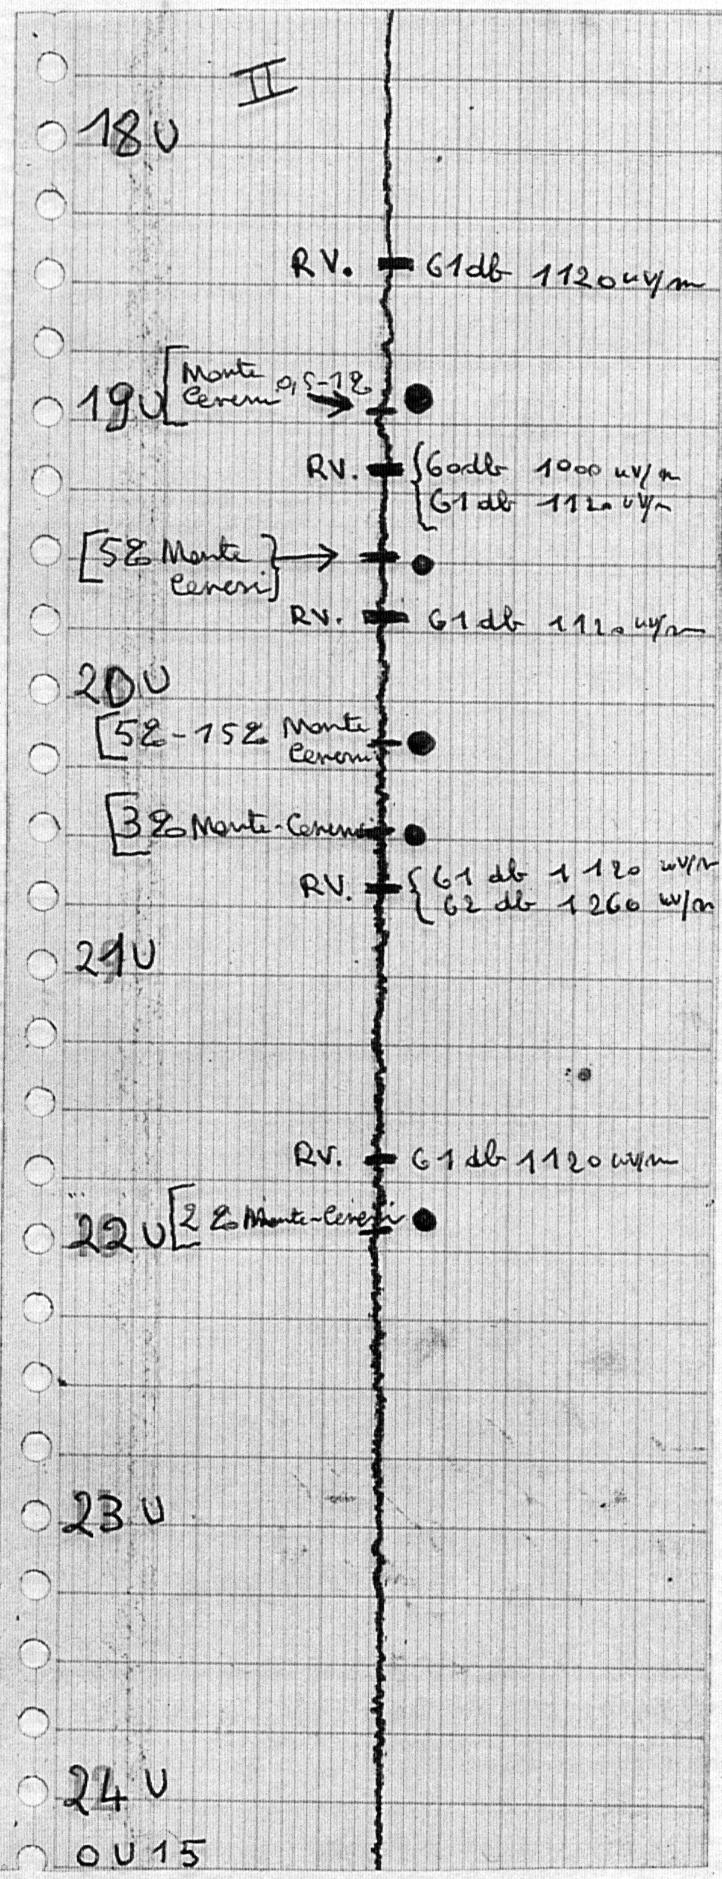 II
18 U
RV. 61 db 1120 uv/m
19 U [Monte Ceneri 0,5-1%
RV. {60 db 1000 uv/m
61 db 1120 uv/m
[5% Monte Ceneri]
RV. 61 db 1120 uv/m
20 U
[5% - 15% Monte Ceneri
[3% Monte-Ceneri
RV. {61 db 1120 uv/m
62 db 1260 uv/m
21 U
RV. 61 db 1120 uv/m
22 U [2% Monte-Ceneri
23 U
24 U
0 U 15